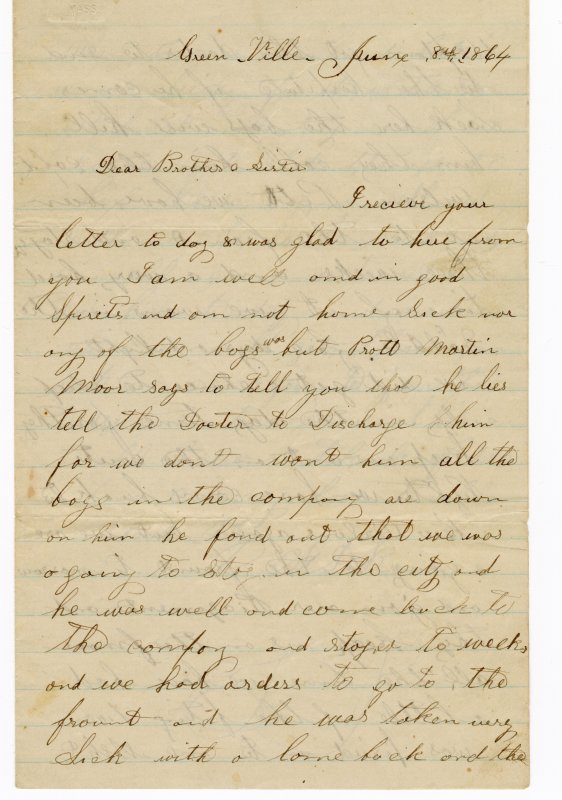 Green Ville June 8th 1864
Dear Brother & Sister
I recieve your
letter to day & was glad to hire from
you I am well and in good
Spirets and am not home Sick nor
any of the boys was but Pratt Martin
Moor says to tell you that he lies
tell the Docter to Discharge him
for we dont want him all the
boys in the company are down
on him he fond out that we was
a going to stay in the city and
he was well and come back to
the compay and stayed to weeks
and we had orders to go to the
frount and he was taken very
Sick with a lame back and the